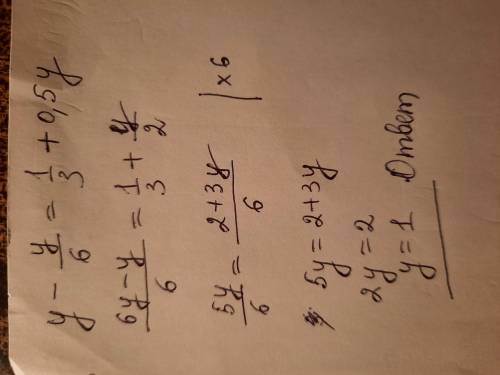 y - y/6 = 1/3 + 0,5y
6y - y/6 = 1/3 + y/2
5y/6 = 2 + 3y/6 | × 6
5y = 2 + 3y
2y = 2
y = 1 Ответ